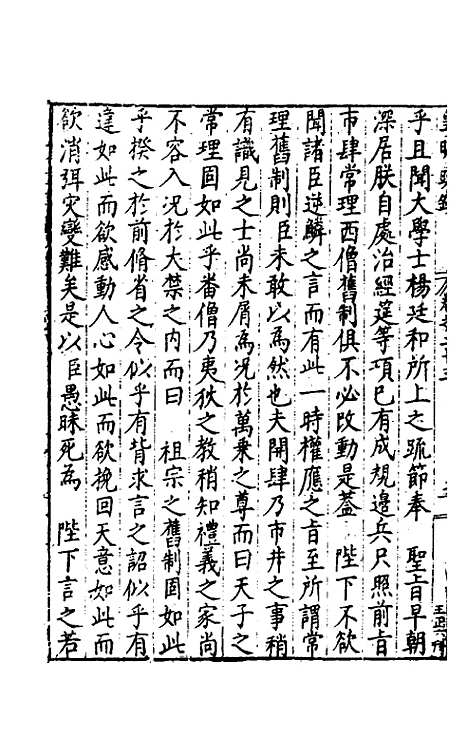 乎且聞大學士楊廷和所上之疏節奉　聖旨早朝
深居朕自處治經筵等項已有成規邉兵只照前旨
市肆常理西僧舊制俱不必改動是蓋　陛下不欲
聞諸臣逆鱗之言而有此一時權應之旨至所謂常
理舊制則臣未敢以為然也夫開肆乃市井之事稍
有識見之士尚未屑為況於萬乗之尊而曰天子之
常理固如此乎畨僧乃夷狄之教稍知禮義之家尚
不容入況於大禁之内而曰　祖宗之舊制固如此
乎揆之於前脩省之令似乎有背求言之詔似乎有
違如此而欲感動人心如此而欲挽回天意如此而
欲消弭灾變難矣是以臣愚昧死為　陛下言之若